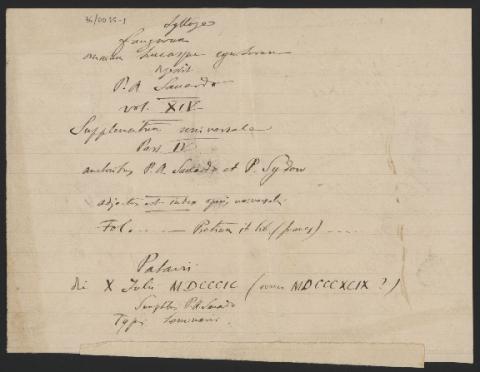 36/0035-1
Sylloge
Fungorum
omnium hucusque cognitorum
P. A. Saccardo
vol. XIV
Supplementum universale
Pars IV
auctoribus P. A. Saccardo et P. Sydow
adjectus est index universalis
Fol. ..... — Pretium it lib. (francs) ....
Patavii
die X Julii MDCCCIC ( MDCCCXCIX ?)
Sumptibus P. A. Saccardo
Typis Seminarii.